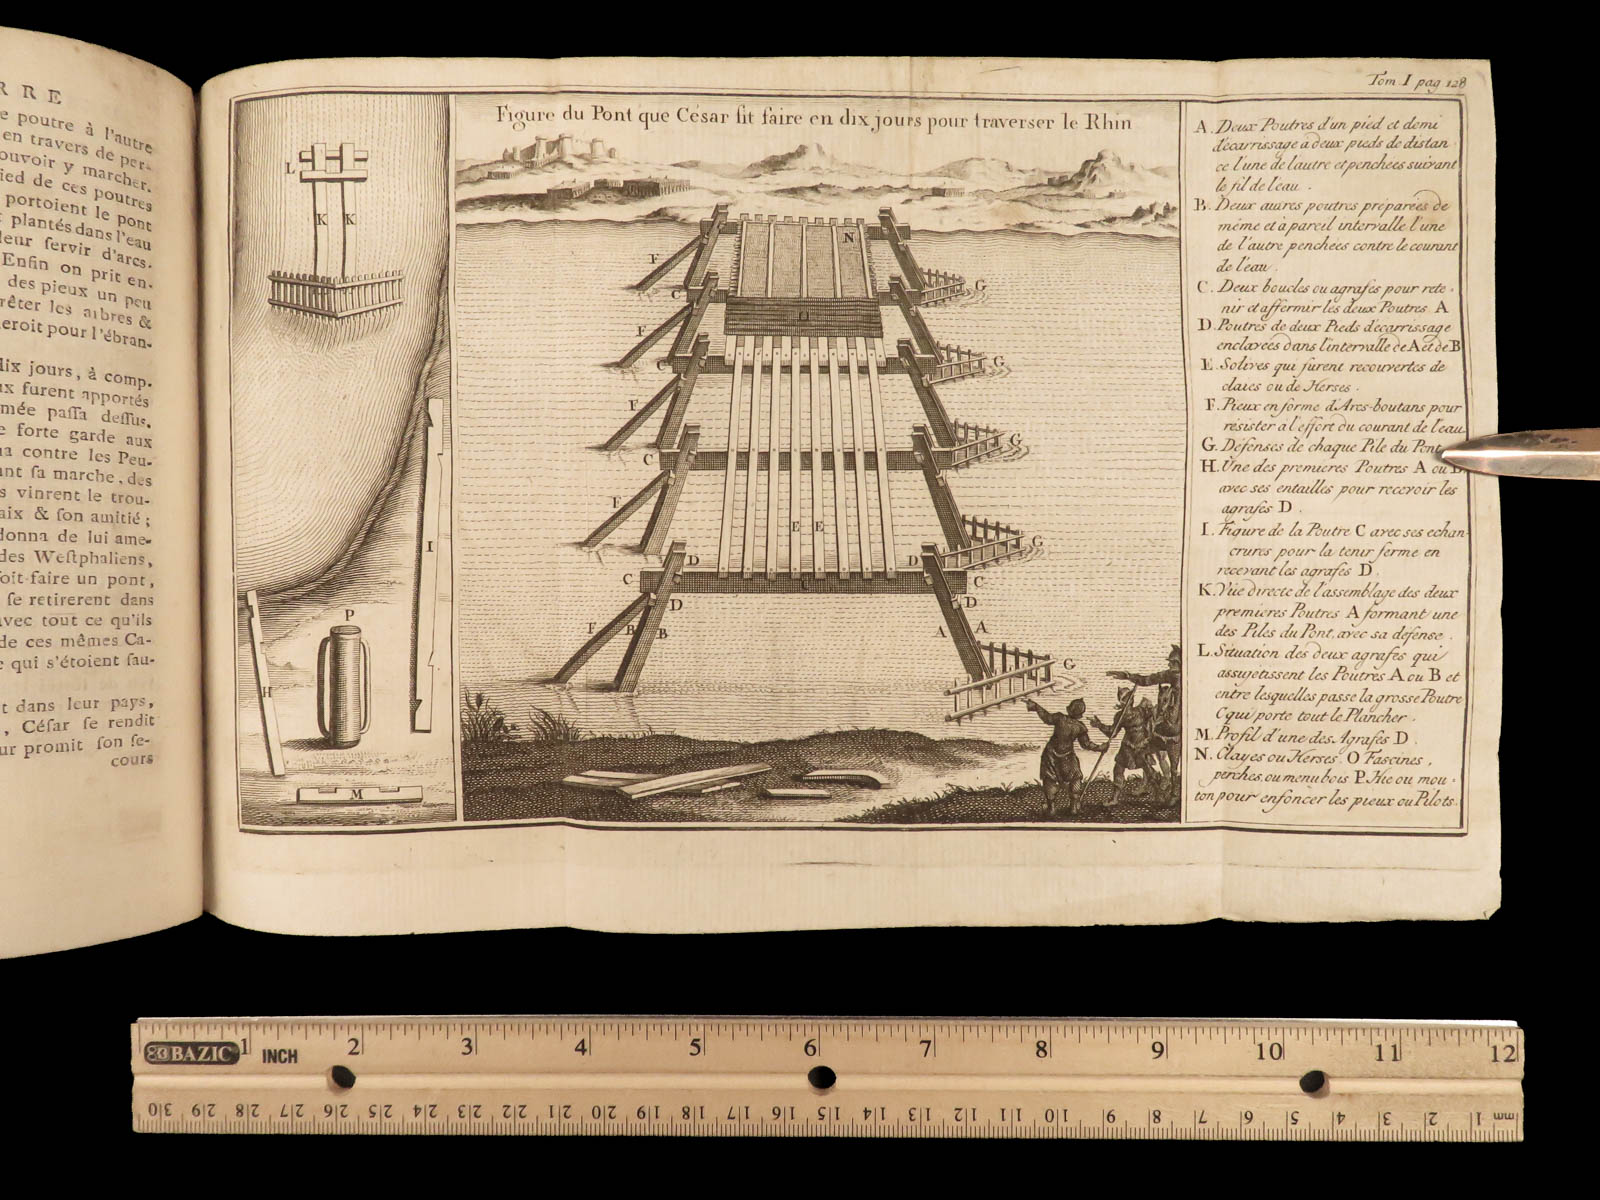 RRE
e poutre à l'autre
en travers de per-
ouvoir y marcher.
ied de ces poutres
portoient le pont
plantés dans l'eau
leur servir d'arcs.
Enfin on prit en-
des pieux un peu
rêter les arbres &
eroit pour l'ébran-
dix jours, à comp.
ux furent apportés
mée passa dessus,
e forte garde aux
na contre les Peu-
ant sa marche, des
s vinrent le trou-
aix & son amitié;
donna de lui ame-
des Westphaliens,
soit faire un pont,
se retirerent dans
avec tout ce qu'ils
de ces mêmes Ca-
e qui s'étoient sau-
t dans leur pays,
, César se rendit
ur promit son se-
cours
Tom I pag 128
Figure du Pont que César fit faire en dix jours pour traverser le Rhin
L
K K
I
H
P
M
N
O
F C G
F C G
F C G
F G
E E
D D
C C
D D
F B B A A
G
A. Deux Poutres d'un pied et demi
décarrissage à deux pieds de distan
ce l'une de lautre et penchées suivant
le fil de l'eau.
B. Deux autres poutres préparées de
même et à pareil intervalle l'une
de l'autre penchées contre le courant
de l'eau.
C. Deux boucles ou agrafes pour rete-
nir et affermir les deux Poutres A
D. Poutres de deux Pieds décarrissage
enclavées dans l'intervalle de A et de B
E. Solives qui furent recouvertes de
claies ou de Herses.
F. Pieux en forme d'Arcs-boutans pour
résister à l'effort du courant de l'eau
G. Défenses de chaque Pile du Pont
H. Une des premieres Poutres A ou B
avec ses entailles pour recevoir les
agrafes D.
I. Figure de la Poutre C avec ses echan-
crures pour la tenir ferme en
recevant les agrafes D.
K. Vüe directe de l'assemblage des deux
premieres Poutres A formant une
des Piles du Pont, avec sa défense.
L. Situation des deux agrafes qui
assujetissent les Poutres A ou B et
entre lesquelles passe la grosse Poutre
C qui porte tout le Plancher.
M. Profil d'une des Agrafes D.
N. Clayes ou Herses. O Fascines,
perches, ou menu bois P. Hie ou mou-
ton pour enfoncer les pieux ou Pilots.
BAZIC INCH 1 2 3 4 5 6 7 8 9 10 11 12
30 29 28 27 26 25 24 23 22 21 20 19 18 17 16 15 14 13 12 11 10 9 8 7 6 5 4 3 2 1 mm